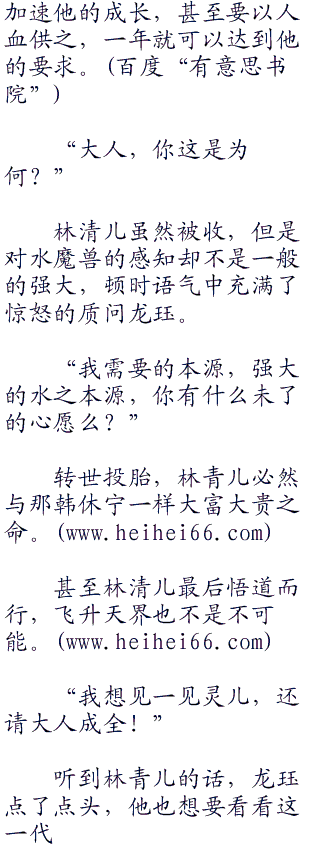 加速他的成长，甚至要以人
血供之，一年就可以达到他
的要求。(百度“有意思书
院”)
“大人，你这是为
何？”
林清儿虽然被收，但是
对水魔兽的感知却不是一般
的强大，顿时语气中充满了
惊怒的质问龙珏。
“我需要的本源，强大
的水之本源，你有什么未了
的心愿么？”
转世投胎，林青儿必然
与那韩休宁一样大富大贵之
命。(www.heihei66.com)
甚至林清儿最后悟道而
行，飞升天界也不是不可
能。(www.heihei66.com)
“我想见一见灵儿，还
请大人成全！”
听到林青儿的话，龙珏
点了点头，他也想要看看这
一代